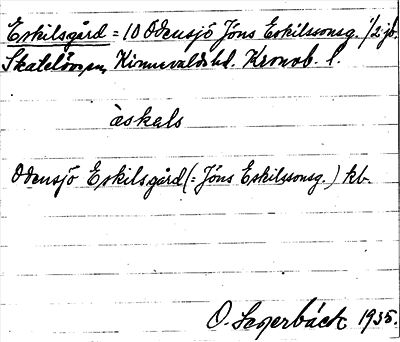 Eskilsgård = 10 Odensjö Jöns Eskilssonsg. 1/2 jb.
Skatelövs sn, Kinnevalds hd. Kronob. l.
àskels
Odensjö Eskilsgård (= Jöns Eskilssonsg.) kb.
O. Lagerbäck 1935.